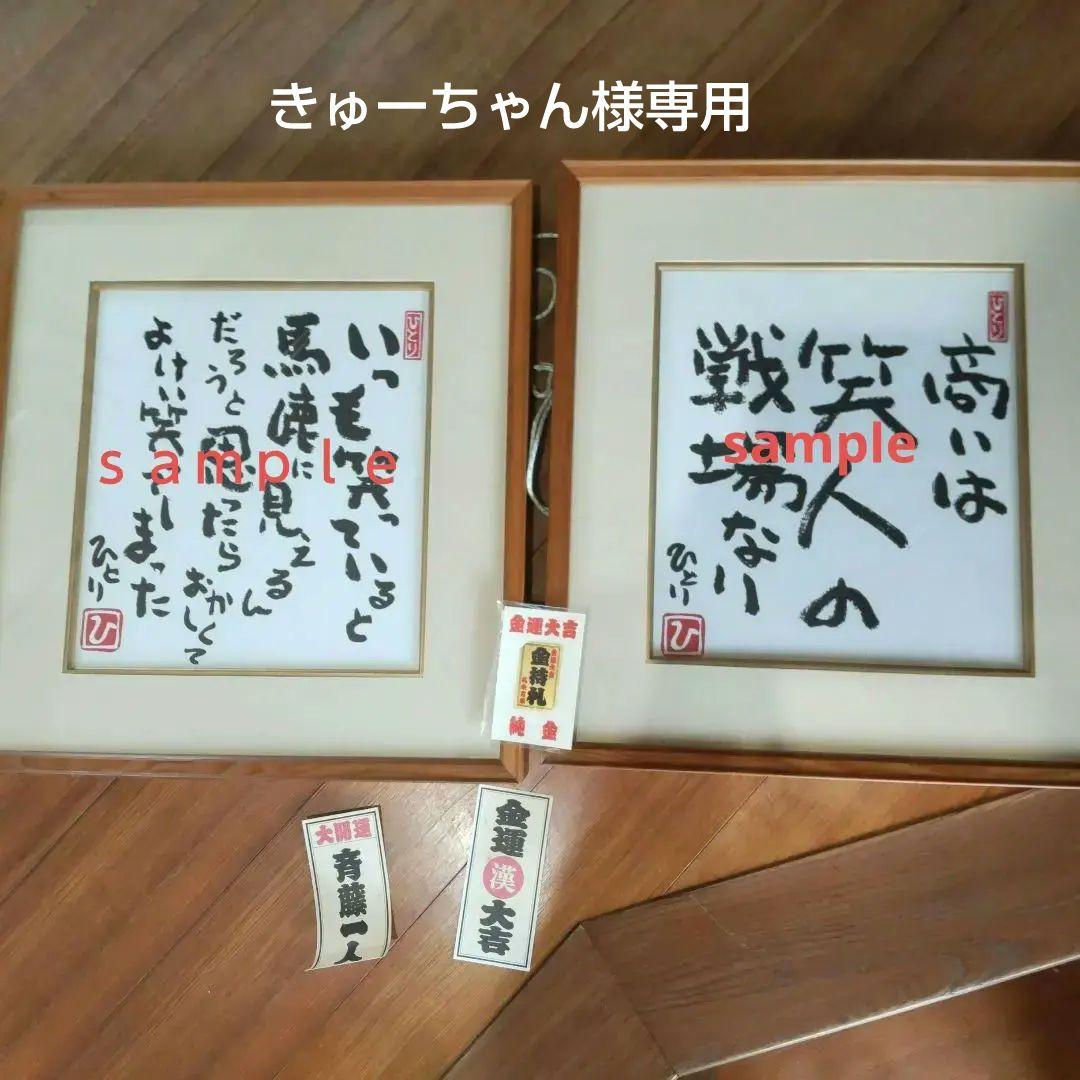 きゅーちゃん様専用
ひとり
いつも笑っていると
馬鹿に見えてるん
だろうと思ったら
おかしくて
よけい笑ってしまった
ひとり
ひ
sample
ひとり
商いは
笑人の
戦場なり
ひとり
ひ
sample
金運大吉
金持札
純金
大開運
斉藤一人
金運
漢
大吉